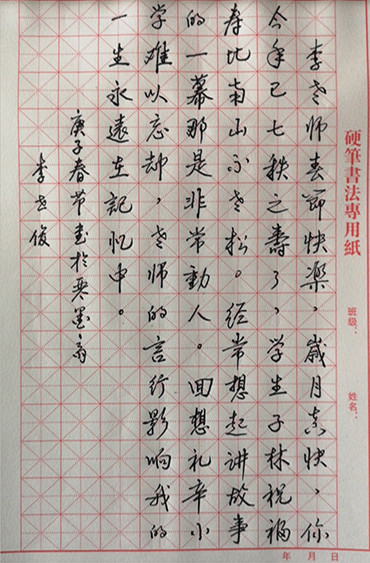 硬筆書法專用紙
班級：
姓名：
李老师春節快樂，歲月真快，你
今年已七秩之壽了，学生子林祝福
寿比南山不老松。经常想起讲故事
的一幕那是非常動人。回想礼辛小
学难以忘却，老师的言行影响我的
一生永遠在記忆中。
庚子春节書於
李志俊
年 月 日